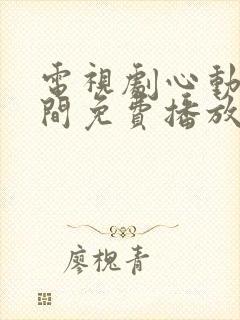 電視劇心動
間免費播放
廖槐青